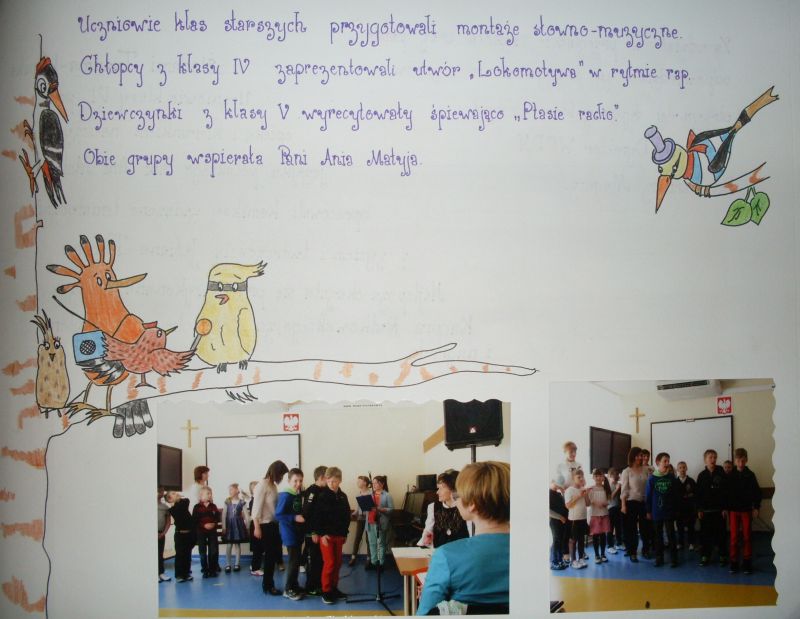 Uczniowie klas starszych przygotowali montaże słowno-muzyczne.
Chłopcy z klasy IV zaprezentowali utwór „Lokomotywa" w rytmie rap.
Dziewczynki z klasy V wyrecytowały śpiewająco „Ptasie radio".
Obie grupy wspierała Pani Ania Matyja.